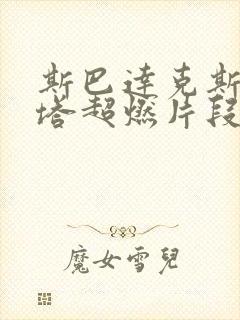 斯巴達克斯
塔超燃片段
魔女雪兒